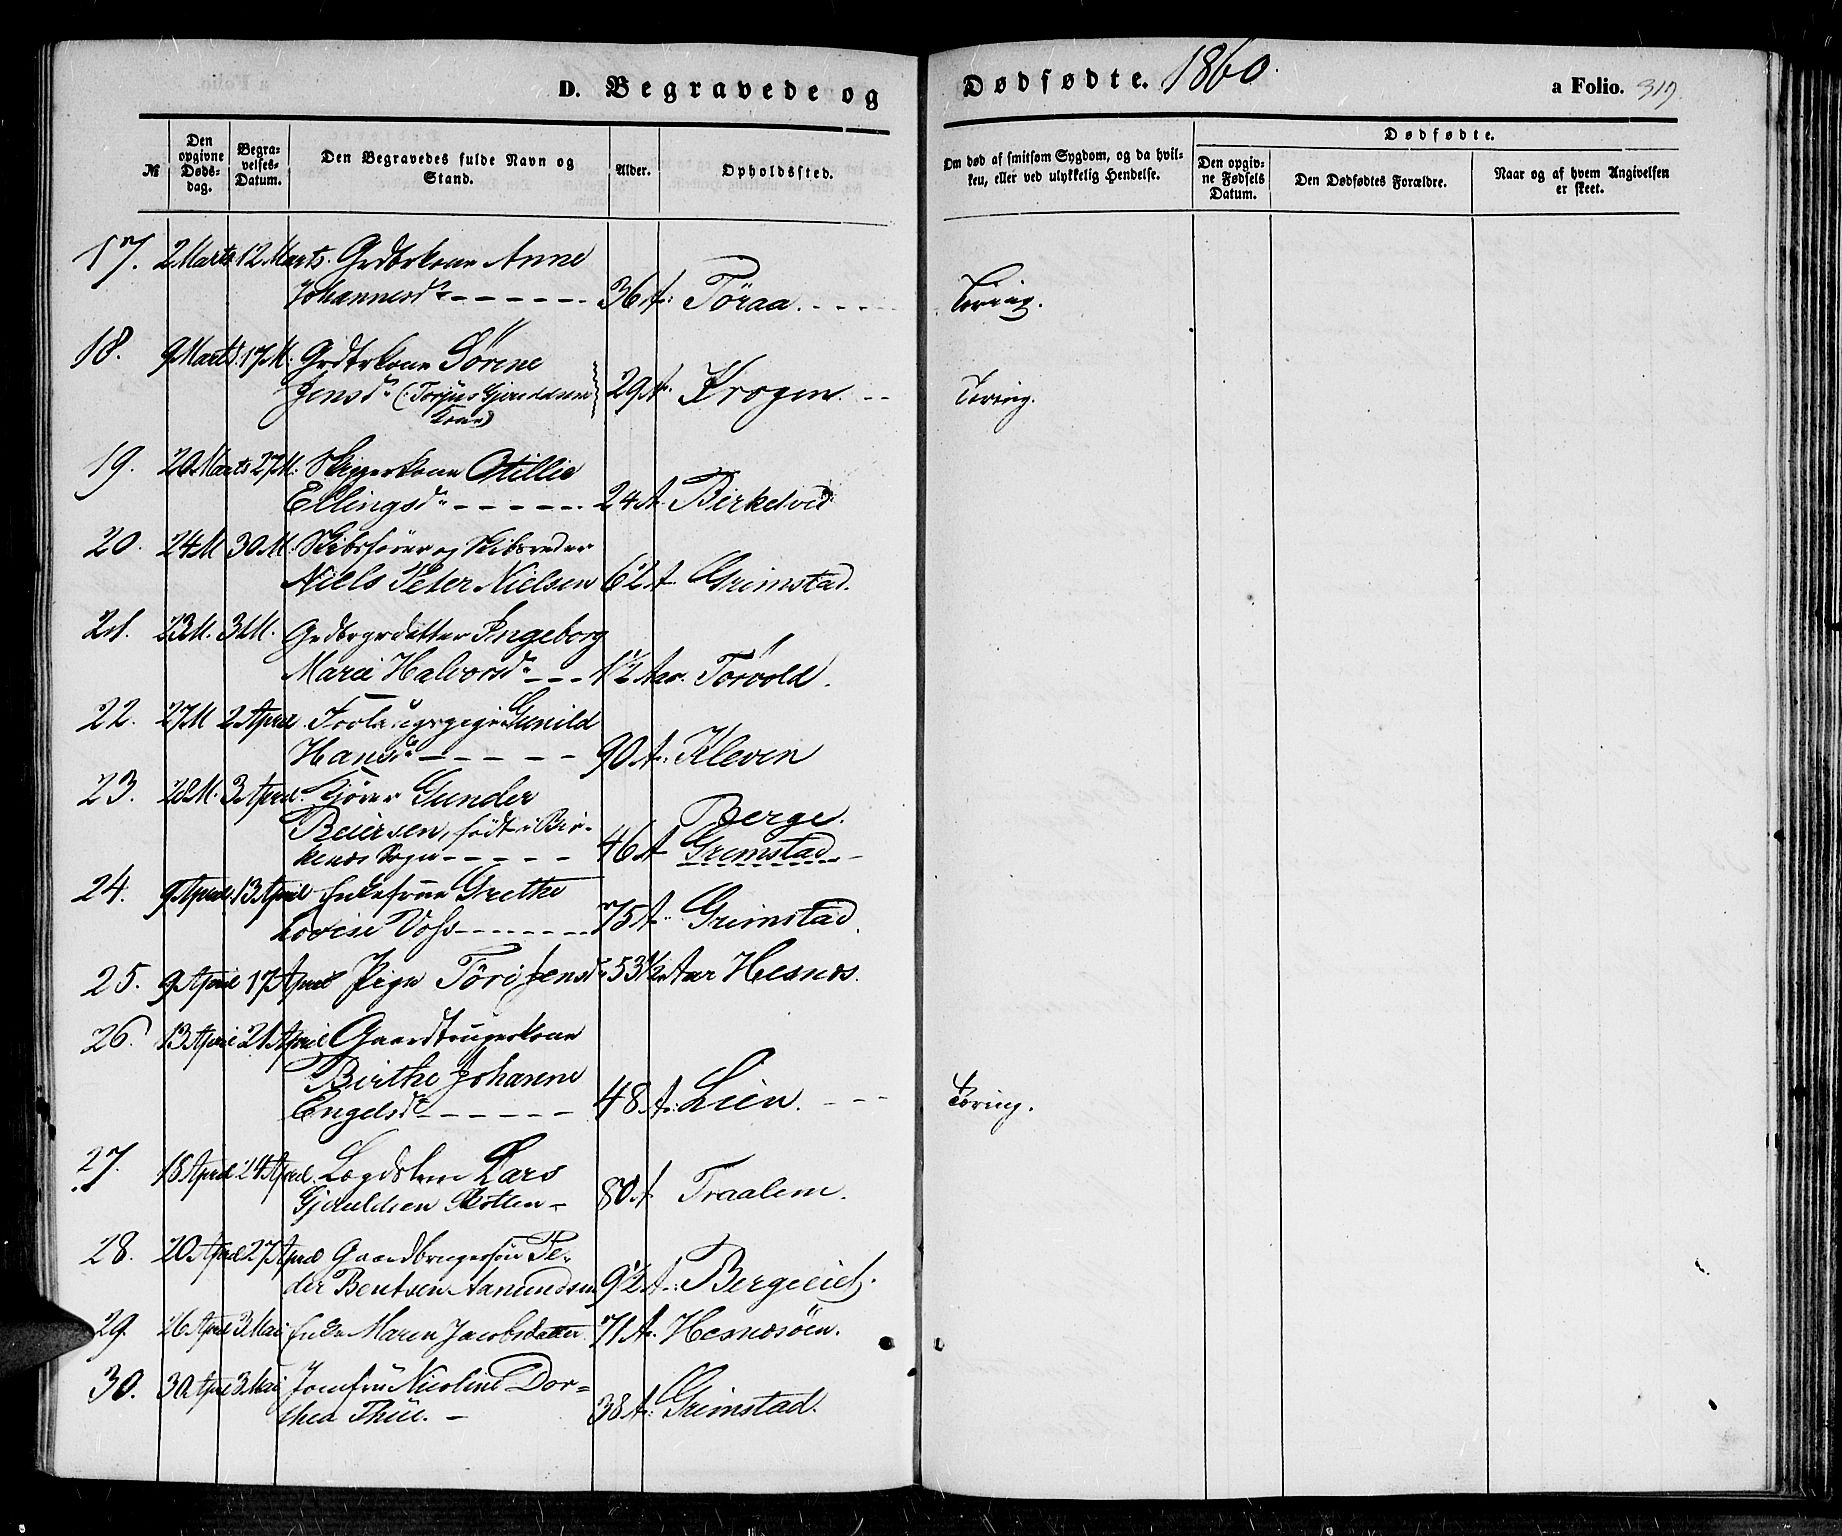 D. Begravede og
Dødfødte. 1860.
a Folio. 317.
№
Den opgivne Dødsdag.
Begravelses-Datum.
Den Begravedes fulde Navn og Stand.
Alder.
Opholdssted.
Om død af smitsom Sygdom, og da hvilken, eller ved ulykkelig Hendelse.
Dødfødte.
Den opgivne Fødsels Datum.
Den Dødfødtes Forældre.
Naar og af hvem Angivelsen er skeet.
17. 2 Marts 12 Marts. Grdbrkone Anne
Johannesdr 36 A: Töraa. Tæring.
18. 9 Marts 17 M. Grdbrkone Sørine
Jensdr (: Torjus Gjeruldsens 29 A. Krogen. Tæring.
Kone)
19. 20 Marts 27 M: Skipperkone Otillie
Ellingsdr 24 A. Birkedal
20. 24 M 30 M: Skibsfører og Skibsreder
Niels Peter Nielsen 62 A. Grimstad.
21. 23 M. 31 M. Grdbrgrdatter Ingeborg
Marie Halvorsdr 1½ Aar. Törvold.
22. 27 M 2 April Gunild
Hansdr 90 A: Kleven
23. 28 M. 3 April. Gunder
Reiersen, födt i Bir- Berge.
kenes Sogn 46 A Grimstad
24. 9 April 13 April Enkefrue Grethe
Lovise Voss 75 A. Grimstad.
25. 9 April 17 April Pige Töri Jensdr 53½ Aar Hesnes.
26. 13 April 21 April Gaardbrugerkone
Birthe Johanne
Engelsdr 48 A: Lien. Tæring.
27. 18 April 24 April. Lægdslem Lars
Gjeruldsen 80 A Traalem.
28. 20 April 27 April Gaardbrugersön Pe-
der Bentsen Aamundsen 9½ A. Bergeeiet.
29. 26 April 3 Mai Enke Maren Jacobsdatter 71 A. Hesnesöen.
30. 30 April 3 Mai Jomfru Nicoline Dor=
thea Thue. 38 A: Grimstad.